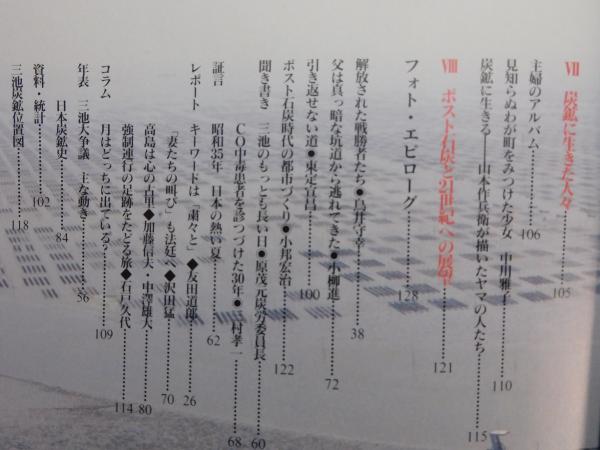 VII 炭鉱に生きた人々……105
主婦のアルバム……106
見知らぬわが町をみつけた少女 中川雅子……110
炭鉱に生きる――山本作兵衛が描いたヤマの人たち……115
VIII ポスト石炭と21世紀への展望……121
フォト・エピローグ……128
解放された戦勝者たち●鳥井守幸……38
父は真っ暗な坑道から逃れてきた●小柳進……72
引き返せない道●東定宣昌……100
ポスト石炭時代の都市づくり●小邦宏治……122
聞き書き 三池のもっとも長い日●原茂元炭労委員長……60
CO中毒患者を診つづけた30年●三村孝一……68
証言 昭和35年 日本の熱い夏……62
レポート キーワードは「粛々と」◆友田道郎……26
「妻たちの叫び」も法廷へ◆沢田猛……70
高島は心の古里◆加藤信夫・中澤雄大……80
強制連行の足跡をたどる旅◆石戸久代……114
コラム 月はどっちに出ている?……109
年表 三池大争議 主な動き……56
日本炭鉱史……84
資料・統計……102
三池炭鉱位置図……118